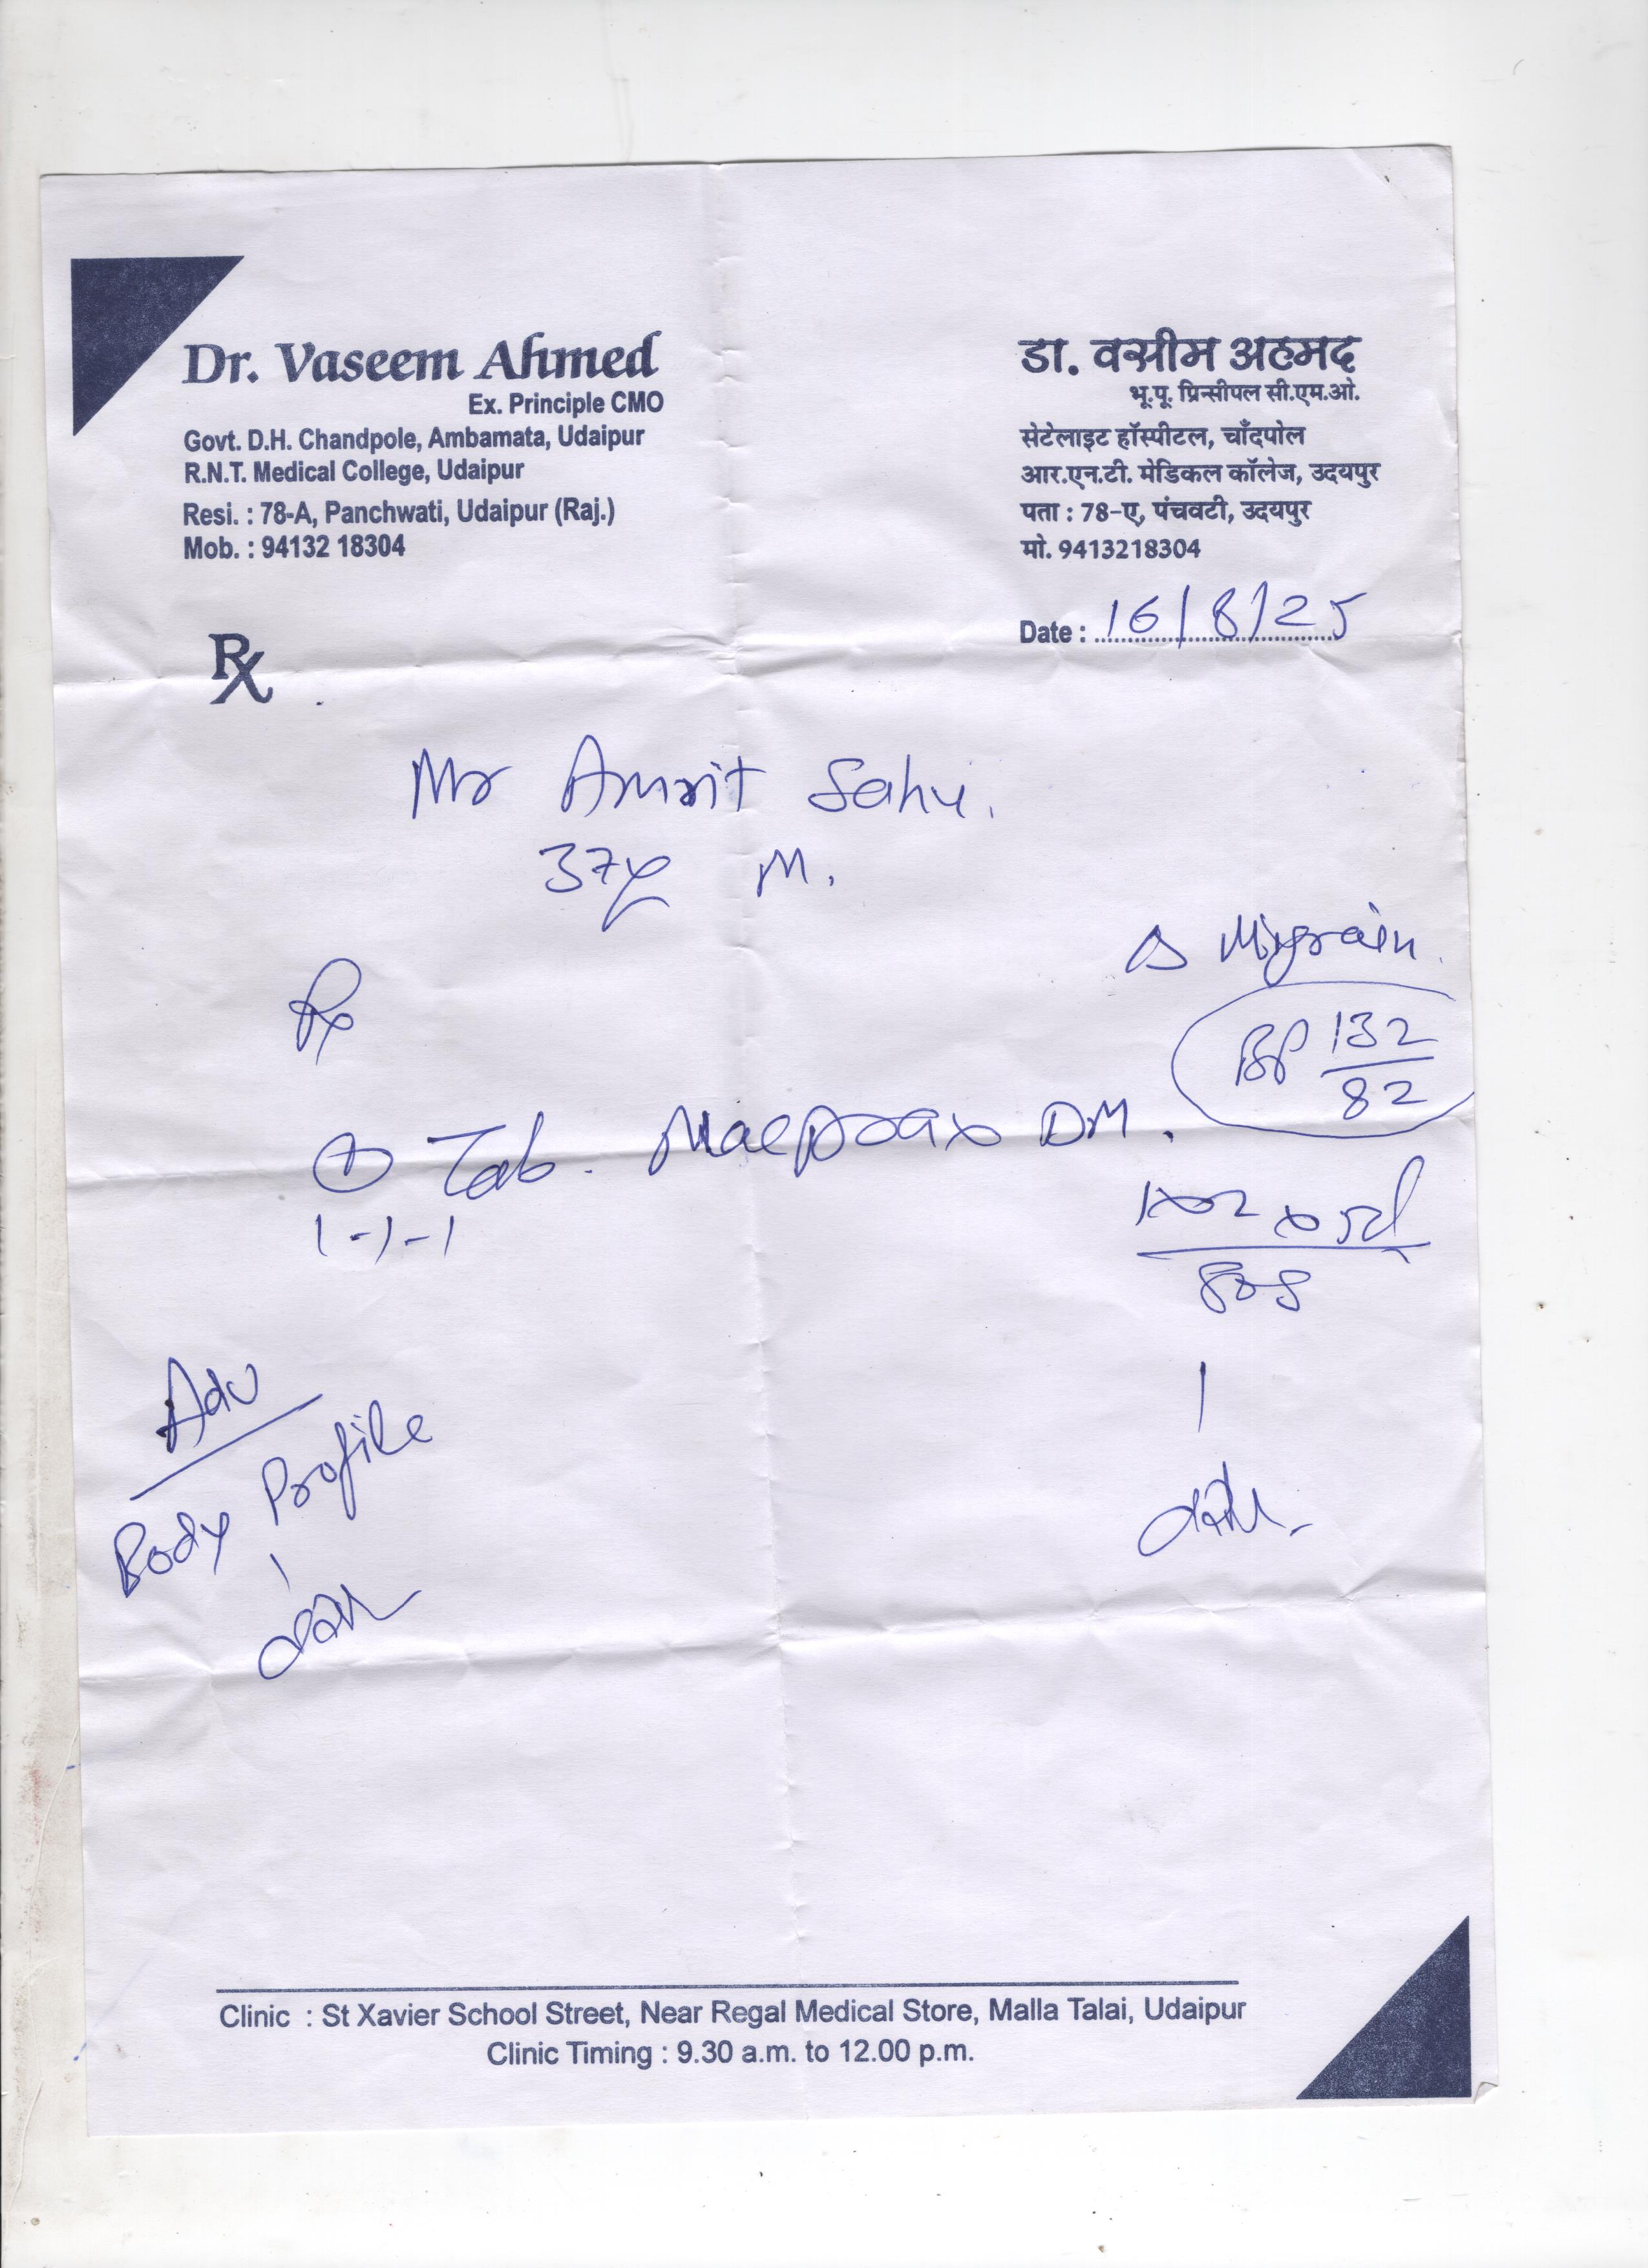 Dr. Vaseem Ahmed
Ex. Principle CMO
Govt. D.H. Chandpole, Ambamata, Udaipur
R.N.T. Medical College, Udaipur
Resi. : 78-A, Panchwati, Udaipur (Raj.)
Mob. : 94132 18304
डा. वसीम अहमद
भू.पू. प्रिन्सीपल सी.एम.ओ.
सेटेलाइट हॉस्पीटल, चाँदपोल
आर.एन.टी. मेडिकल कॉलेज, उदयपुर
पता : 78-ए, पंचवटी, उदयपुर
मो. 9413218304
Date : 16/8/25
Rx
Mr Amrit Sahu.
37y M.
Migrain.
Rx
BP 132/82
Tab. DM.
1-1-1
x 5d
Adv
Body Profile
Clinic : St Xavier School Street, Near Regal Medical Store, Malla Talai, Udaipur
Clinic Timing : 9.30 a.m. to 12.00 p.m.